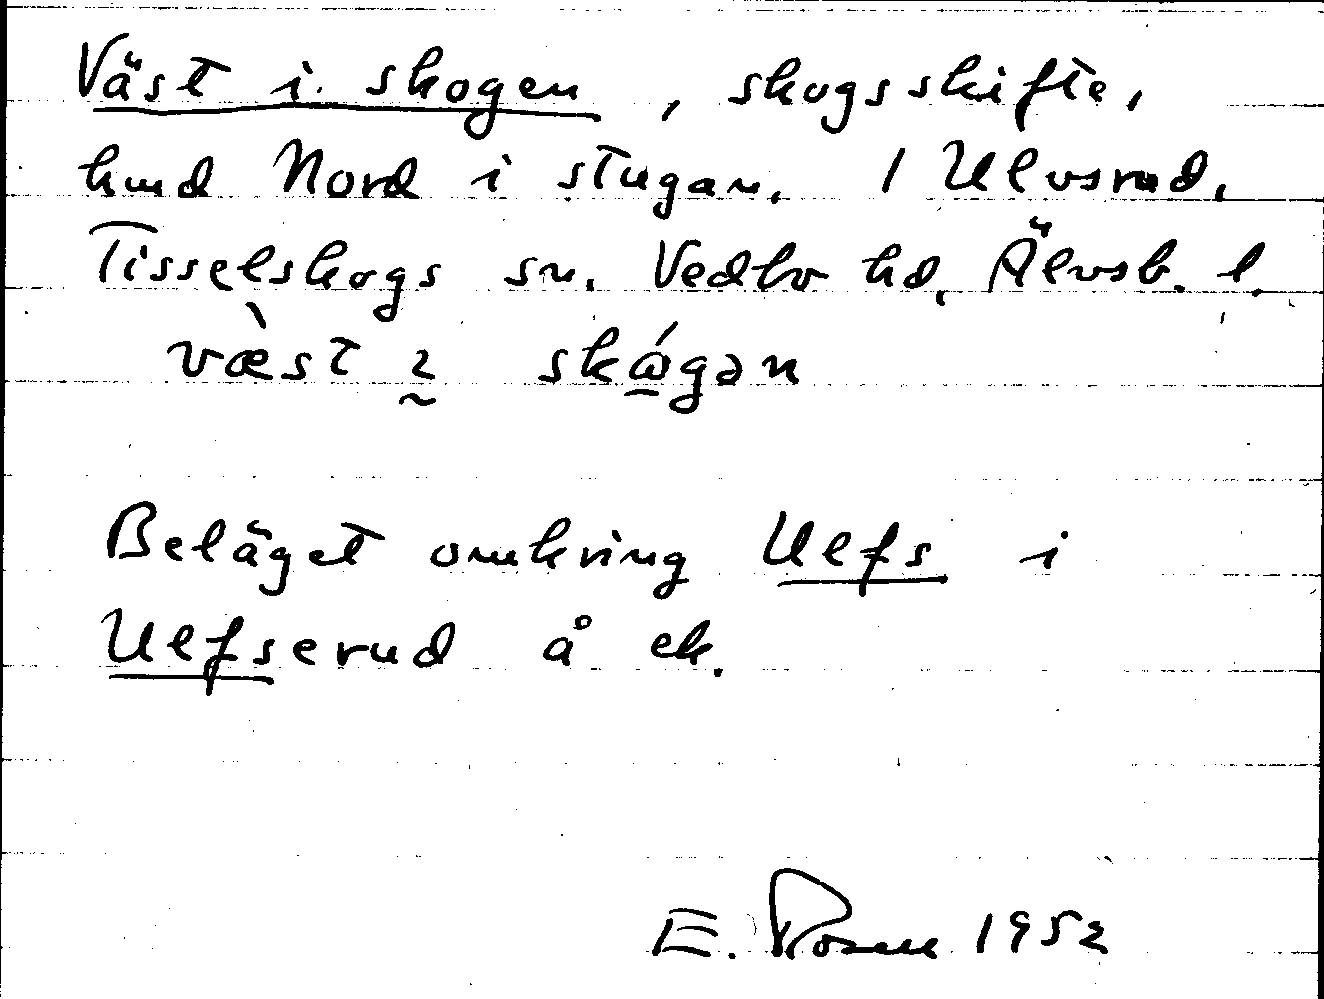 Väst i skogen, skogsskifte,
hmd Nord i stugan. 1 Ulvsrud,
Tisselskogs sn. Vedbo hd, Älvsb. l.
væ̀st ı̰ skώgən
Beläget omkring Uefs i
Uefserud å ek.
E. Rosell 1952